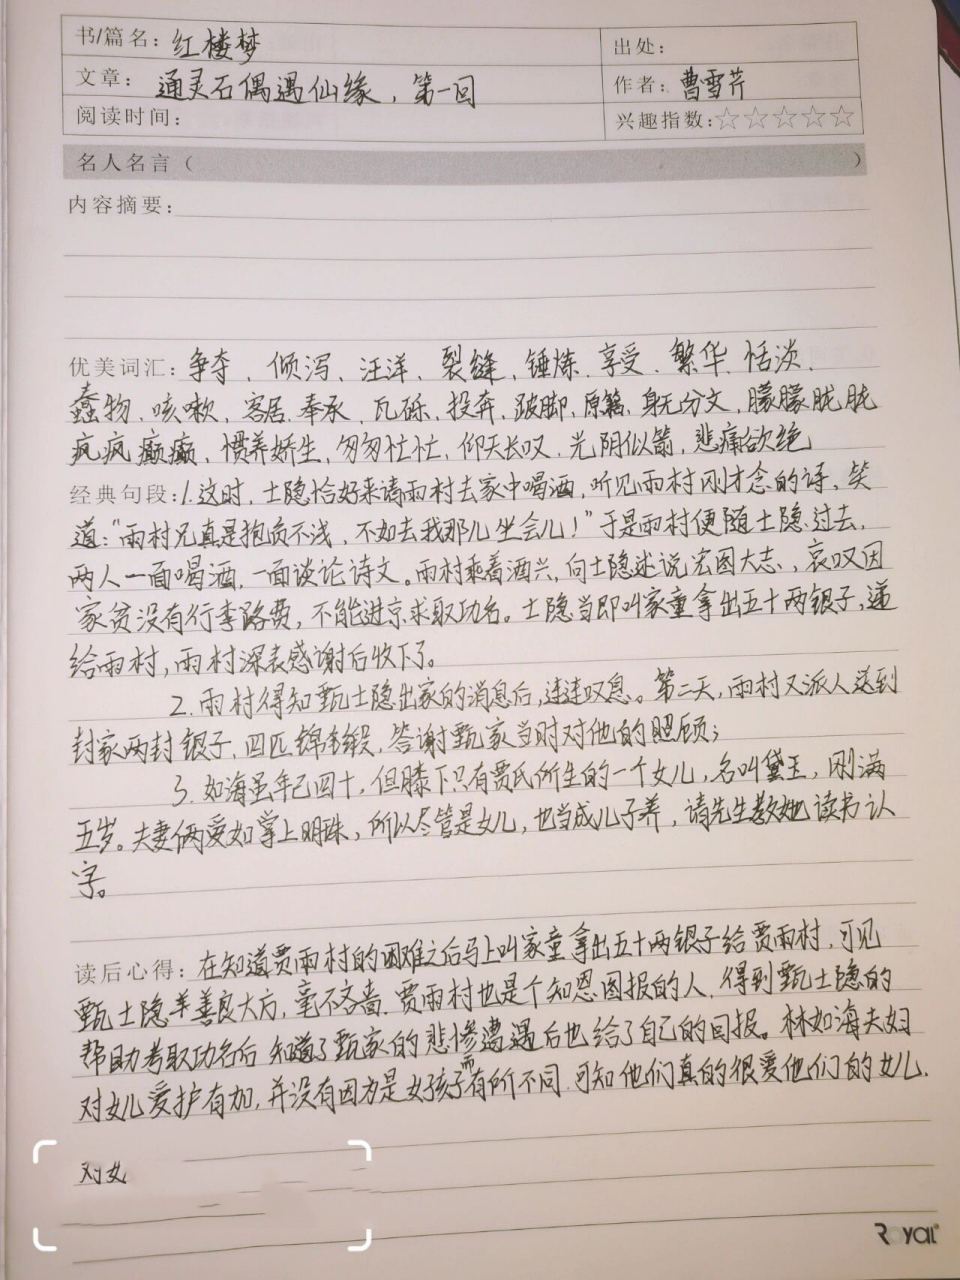 书/篇名：红楼梦 出处：
文章：通灵石偶遇仙缘，第一回 作者：曹雪芹
阅读时间： 兴趣指数：☆☆☆☆☆
名人名言（ ）
内容摘要：
优美词汇：争夺、倾泻、汪洋、裂缝、锤炼、享受、繁华、恬淡、
蠢物、咳嗽、客居、奉承、瓦砾、投奔、跛脚、原籍、身无分文、朦朦胧胧
疯疯癫癫、惯养娇生、匆匆忙忙、仰天长叹、光阴似箭、悲痛欲绝
经典句段：1.这时，士隐恰好来请雨村去家中喝酒，听见雨村刚才念的诗，笑
道：“雨村兄真是抱负不浅，不如去我那儿坐会儿！”于是雨村便随士隐过去，
两人一面喝酒，一面谈论诗文。雨村乘着酒兴，向士隐述说宏图大志，哀叹因
家贫没有行李路费，不能进京求取功名。士隐当即叫家童拿出五十两银子，递
给雨村，雨村深表感谢后收下了。
2.雨村得知甄士隐出家的消息后，连连叹息。第二天，雨村又派人送到
封家两封银子、四匹锦缎，答谢甄家当时对他的照顾；
3.如海虽年已四十，但膝下只有贾氏所生的一个女儿，名叫黛玉，刚满
五岁。夫妻俩爱如掌上明珠，所以尽管是女儿，也当成儿子养，请先生教她读书认
字。
读后心得：在知道贾雨村的困难之后马上叫家童拿出五十两银子给贾雨村，可见
甄士隐善良大方，毫不吝啬。贾雨村也是个知恩图报的人，得到甄士隐的
帮助考取功名后知道了甄家的悲惨遭遇后也给了自己的回报。林如海夫妇
对女儿爱护有加，并没有因为是女孩子而有所不同，可知他们真的很爱他们的女儿.
对女
Royal